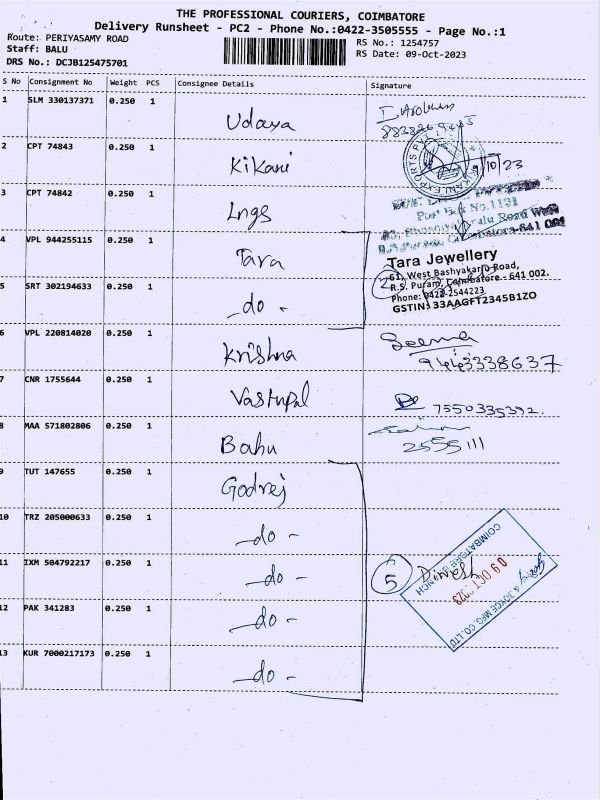 THE PROFESSIONAL COURIERS, COIMBATORE
Delivery Runsheet - PC2 - Phone No.:0422-3505555 - Page No.:1
Route: PERIYASAMY ROAD
Staff: BALU
DRS No.: DCJB125475701
RS No.: 1254757
RS Date: 09-Oct-2023
S No Consignment No Weight PCS Consignee Details Signature
1 SLM 330137371 0.250 1 Udaya
2 CPT 74843 0.250 1 Kikani
/10/23
3 CPT 74842 0.250 1 Lngs
4 VPL 944255115 0.250 1 Tara
Tara Jewellery
61, West Bashyakarlu Road,
R.S. Puram, Coimbatore - 641 002.
Phone: 0422-2544223
GSTIN: 33AAGFT2345B1ZO
2
5 SRT 302194633 0.250 1 -do-
6 VPL 220814020 0.250 1 Krishna
7 CNR 1755644 0.250 1 Vastupal
7550335392.
8 MAA 571802806 0.250 1 Babu
2555111
9 TUT 147655 0.250 1 Godrej
10 TRZ 205000633 0.250 1 -do-
11 IXM 504792217 0.250 1 -do-
5 Dinesh
COIMBATORE BRANCH
09 OCT 2023
MFG. CO. LTD
12 PAK 341283 0.250 1 -do-
13 KUR 7000217173 0.250 1 -do-